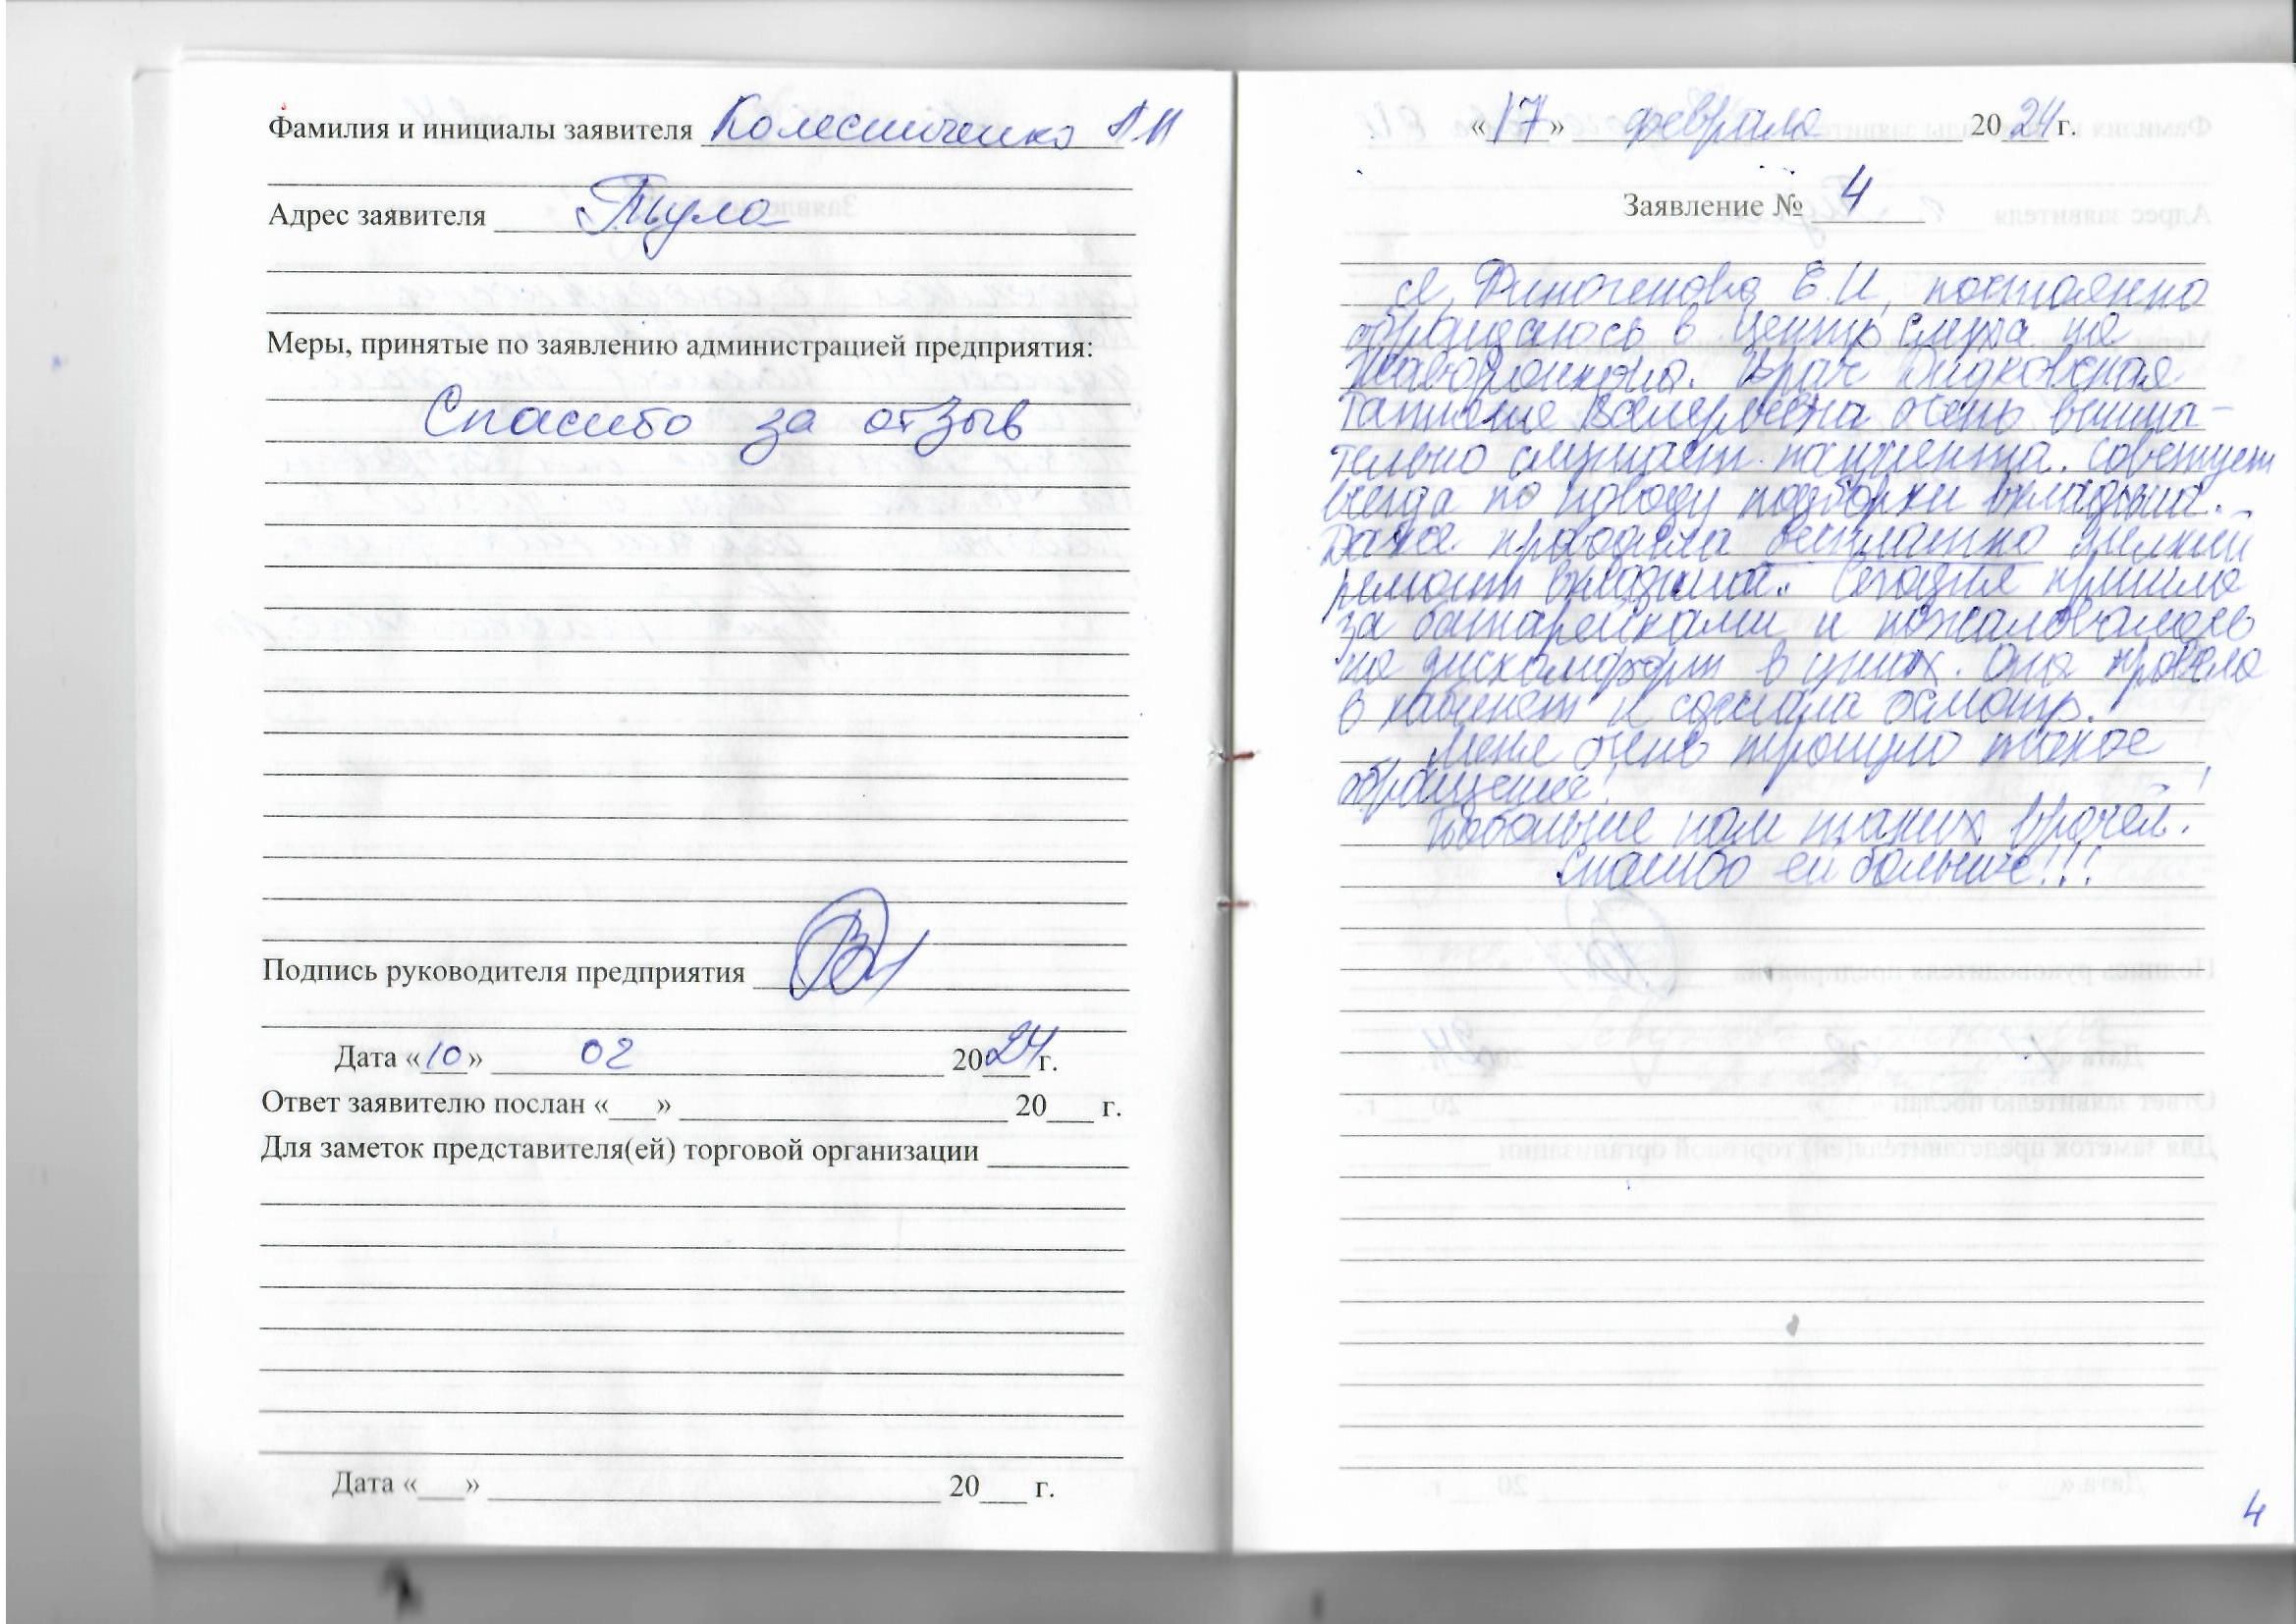 Фамилия и инициалы заявителя Колесниченко А И
Адрес заявителя Тула
Меры, принятые по заявлению администрацией предприятия:
Спасибо за отзыв
Подпись руководителя предприятия
Дата «10» 02 2024 г.
Ответ заявителю послан «___» 20___ г.
Для заметок представителя(ей) торговой организации
Дата «___» 20___ г.
«17» февраля 2024 г.
Заявление № 4
Я, Е.И, постоянно
обращаюсь в Центр слуха на
Врач
Татьяна Валерьевна очень внима-
тельно слушает пациента. Советует
всегда по поводу подборки вкладыша.
Даже проводила бесплатно мелкий
ремонт вкладыша. Сегодня пришла
за батарейками и пожаловалась
на дискомфорт в ушах. Она провела
в кабинет и сделала осмотр.
Меня очень тронуло такое
обращение!
Побольше нам таких врачей!
Спасибо ей большие!!!
4